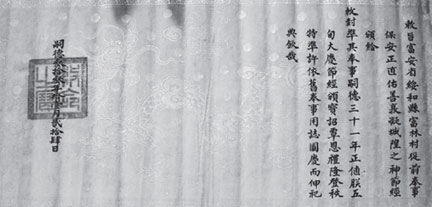 敕旨富安省綏和縣富林村從前奉事
保安正直佑善襄凝城隍之神節經
頒給
敕封準其奉事嗣德三十一年正值朕五
旬大慶節經頒寶詔覃恩禮隆登秩
特準許依舊奉事用誌國慶而伸祀
典欽哉
嗣德叁拾年月貳拾肆日